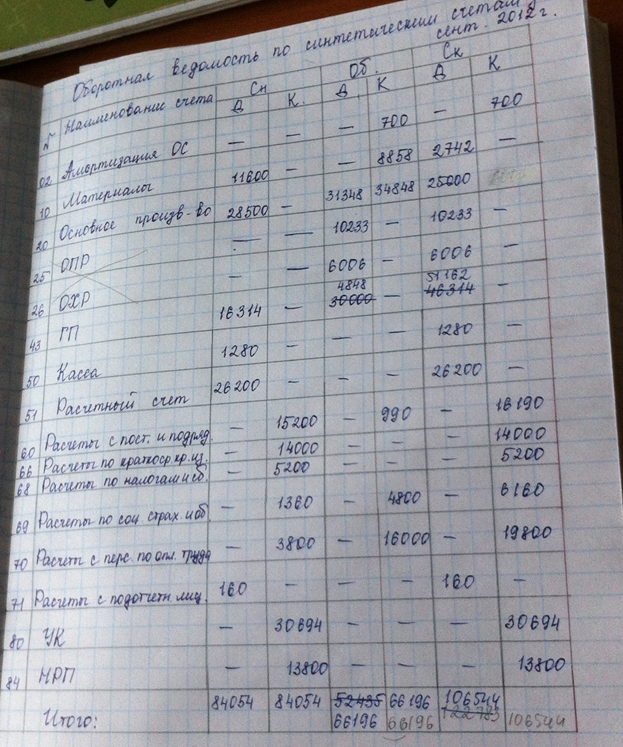 Оборотная ведомость по синтетическим счетам
сент. 2012 г.
N Наименование счета Сн Об. Ск
Д К. Д К Д К
02 Амортизация ОС — — — 700 — 700
10 Материалы 11600 — — 8858 2742 —
20 Основное произв-во 28500 — 31348 34848 25000
25 ОПР — — 10233 — 10233 —
26 ОХР — — 6006 — 6006 —
4848 51162
43 ГП 16314 — 30000 — 46314 —
50 Касса 1280 — — — 1280 —
51 Расчетный счет 26200 — — — 26200 —
60 Расчеты с пост. и подряд. — 15200 — 990 — 16190
66 Расчеты по краткоср. кр. из. — 14000 — — — 14000
68 Расчеты по налогам и сб. — 5200 — — — 5200
69 Расчеты по соц страх. и об. — 1360 — 4800 — 6160
70 Расчеты с перс. по опл. труда — 3800 — 16000 — 19800
71 Расчеты с подотчетн лиц. 160 — — — 160 —
80 УК — 30694 — — — 30694
84 НРП — 13800 — — — 13800
Итого: 84054 84054 52435 66196 106544
66196 66196 122783 106544